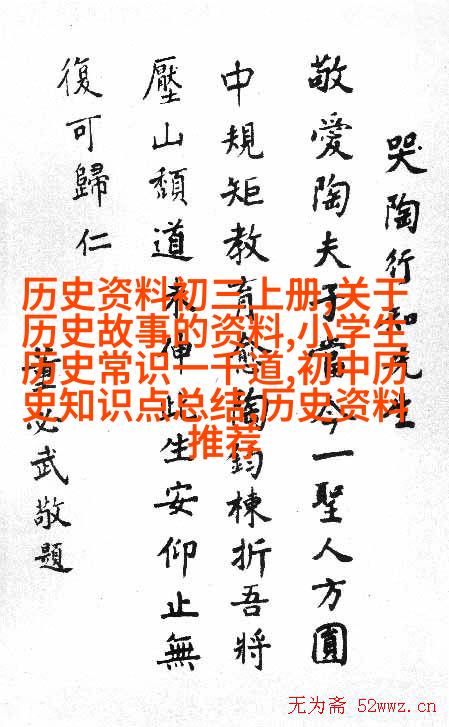 哭陶行知先生
敬愛陶夫子當今一聖人方圓
中規矩教育愈陶鈞棟折吾將
壓山頹道未伸此生安仰止無
復可歸仁
董必武敬題
历史资料初三上册,关于
历史故事的资料,小学生
历史常识一千道,初中历
史知识点总结,历史资料
推荐
无为斋 52wwz.cn